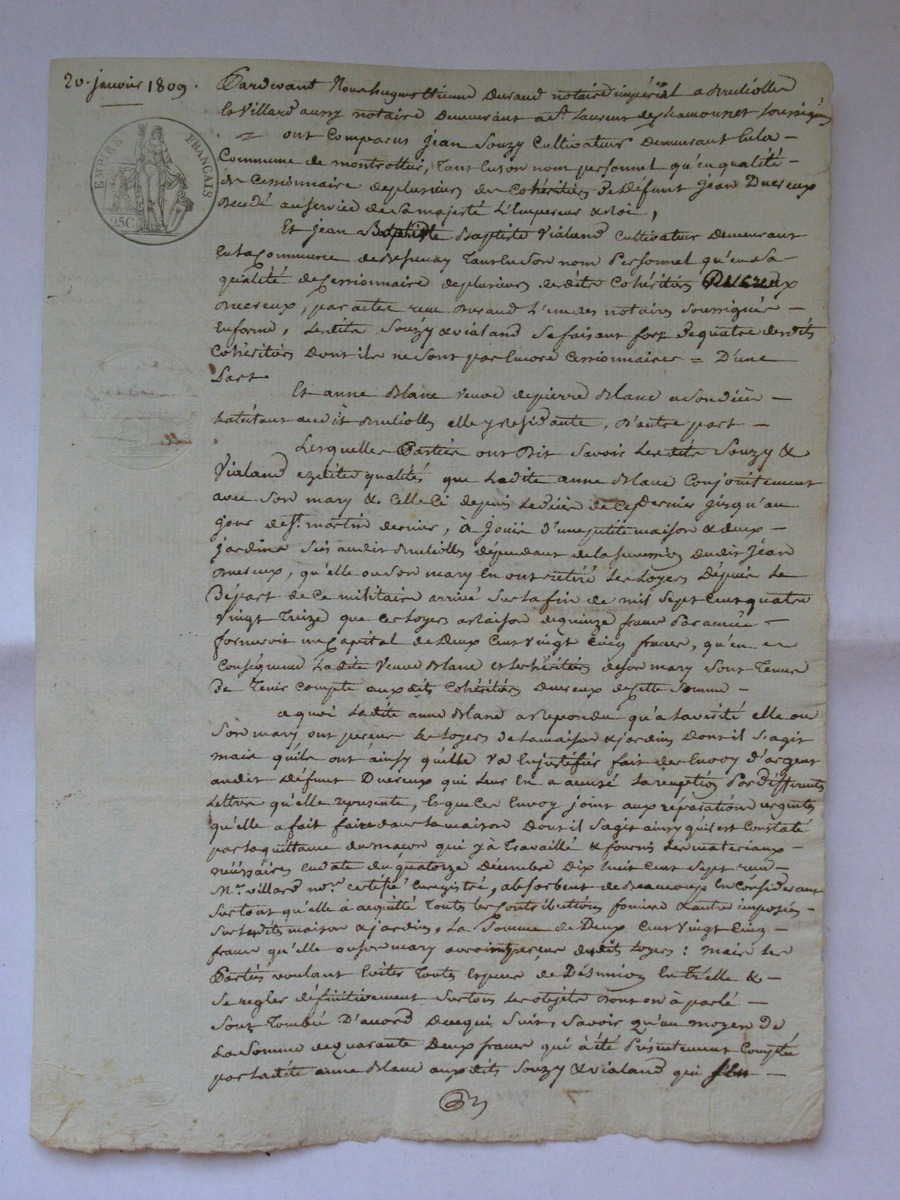 20. janvier 1809.
EMPIRE FRANÇAIS
25C
Pardevant Nous hugues Etienne Durand notaire impérial a Brulliolles
Et Villard aussy notaire Demeurant a St. Laurent de Chamousset soussignés
= ont Comparus Jean Souzy Cultivateur Demeurant En la -
Commune de montrottier, tant En son nom personnel qu'en qualité -
de Cessionnaire de plusieurs des Cohéritiers De défunt Jean Ducreux
Decedé au service de Sa majesté L'Empereur & Roi,
Et Jean Baptiste Vialand Cultivateur Demeurant
En la Commune de Bessenay Tant En Son nom Personnel qu'en sa
qualité de Cessionnaire de plusieurs desdits Cohéritiers
Ducreux, par actes reçu Durand L'un des notaires Soussignés -
En forme, Lesdits Souzy & vialand se faisant fort de quatre desdits
Cohéritiers Dont ils ne Sont pas Encore Cessionnaires = D'une
Part
Et anne Blanc veuve de pierre Blanc
audit Brulliolles elle y residante, D'autre part -
Lesquelles Parties ont Dit Savoir Lesdits Souzy &
Vialand ezdites qualités que Ladite anne Blanc Conjointement
avec Son mary & Celle Ci depuis Le décès de Ce Dernier jusqu'au
jour de St. martin dernier, à Jouii d'une petite maison & deux -
jardins Sis audit Brulliolles dépendant de la succession dudit Jean
Ducreux, qu'elle ou Son mary En ont retiré Les Loyers Dépuis Le
Depart de Ce militaire arrivé Sur la fin de mil Sept Cent quatre
Vingt Treize que Ces Loyers a Raison de quinze francs Par année -
formeroit un Capital de Deux Cent Vingt Cinq francs, qu'en -
Conséquence Ladite Veuve Blanc et Les héritiers de son mary Sont Tenus
De Tenir Compte aux dits Cohéritiers Ducreux de Cette Somme -
a quoi Ladite anne Blanc a Repondu qu'a La vérité elle ou
Son mary ont perçus Les Loyers de La maison & jardins Dont il S'agit
mais qu'ils ont ainsy qu'elle va En justifier fait des Envoy d'argent
audit défunt Ducreux qui Leur En a accusé La reception Par differents
Lettres qu'elle represente, Et que Ces Envoy joint aux réparations urgentes
qu'elle a fait faire dans La maison Dont il S'agit ainsy qu'il est Constaté
par La quittance du maçon qui y à Travaillé & fournis Les materiaux -
nécessaires En date du quatorze Décembre Dix huit Cent Sept
Mr. villard nore. certifié Enregistré, absorbent de Beaucoup En Considerant
Sur tout qu'elle à acquitté Toutes Les Contributions fonciere & autre imposés -
Sur Lesdits maison & jardins, La Somme de Deux Cent Vingt Cinq -
francs qu'elle ou son mary avoient perçu desdits Loyers: mais Les
Parties voulant Eviter Toutes Espece de Désunion Entr'elle & -
Se regler définitivement Sur tous Les objets Dont on à parlé -
Sont Tombé D'acord De ce qui Suit, Savoir qu'au moyen de
La Somme de quarante Deux francs qui à été Présentement Comptée
par Ladite anne Blanc auxdits Souzy & vialand qui S'en -